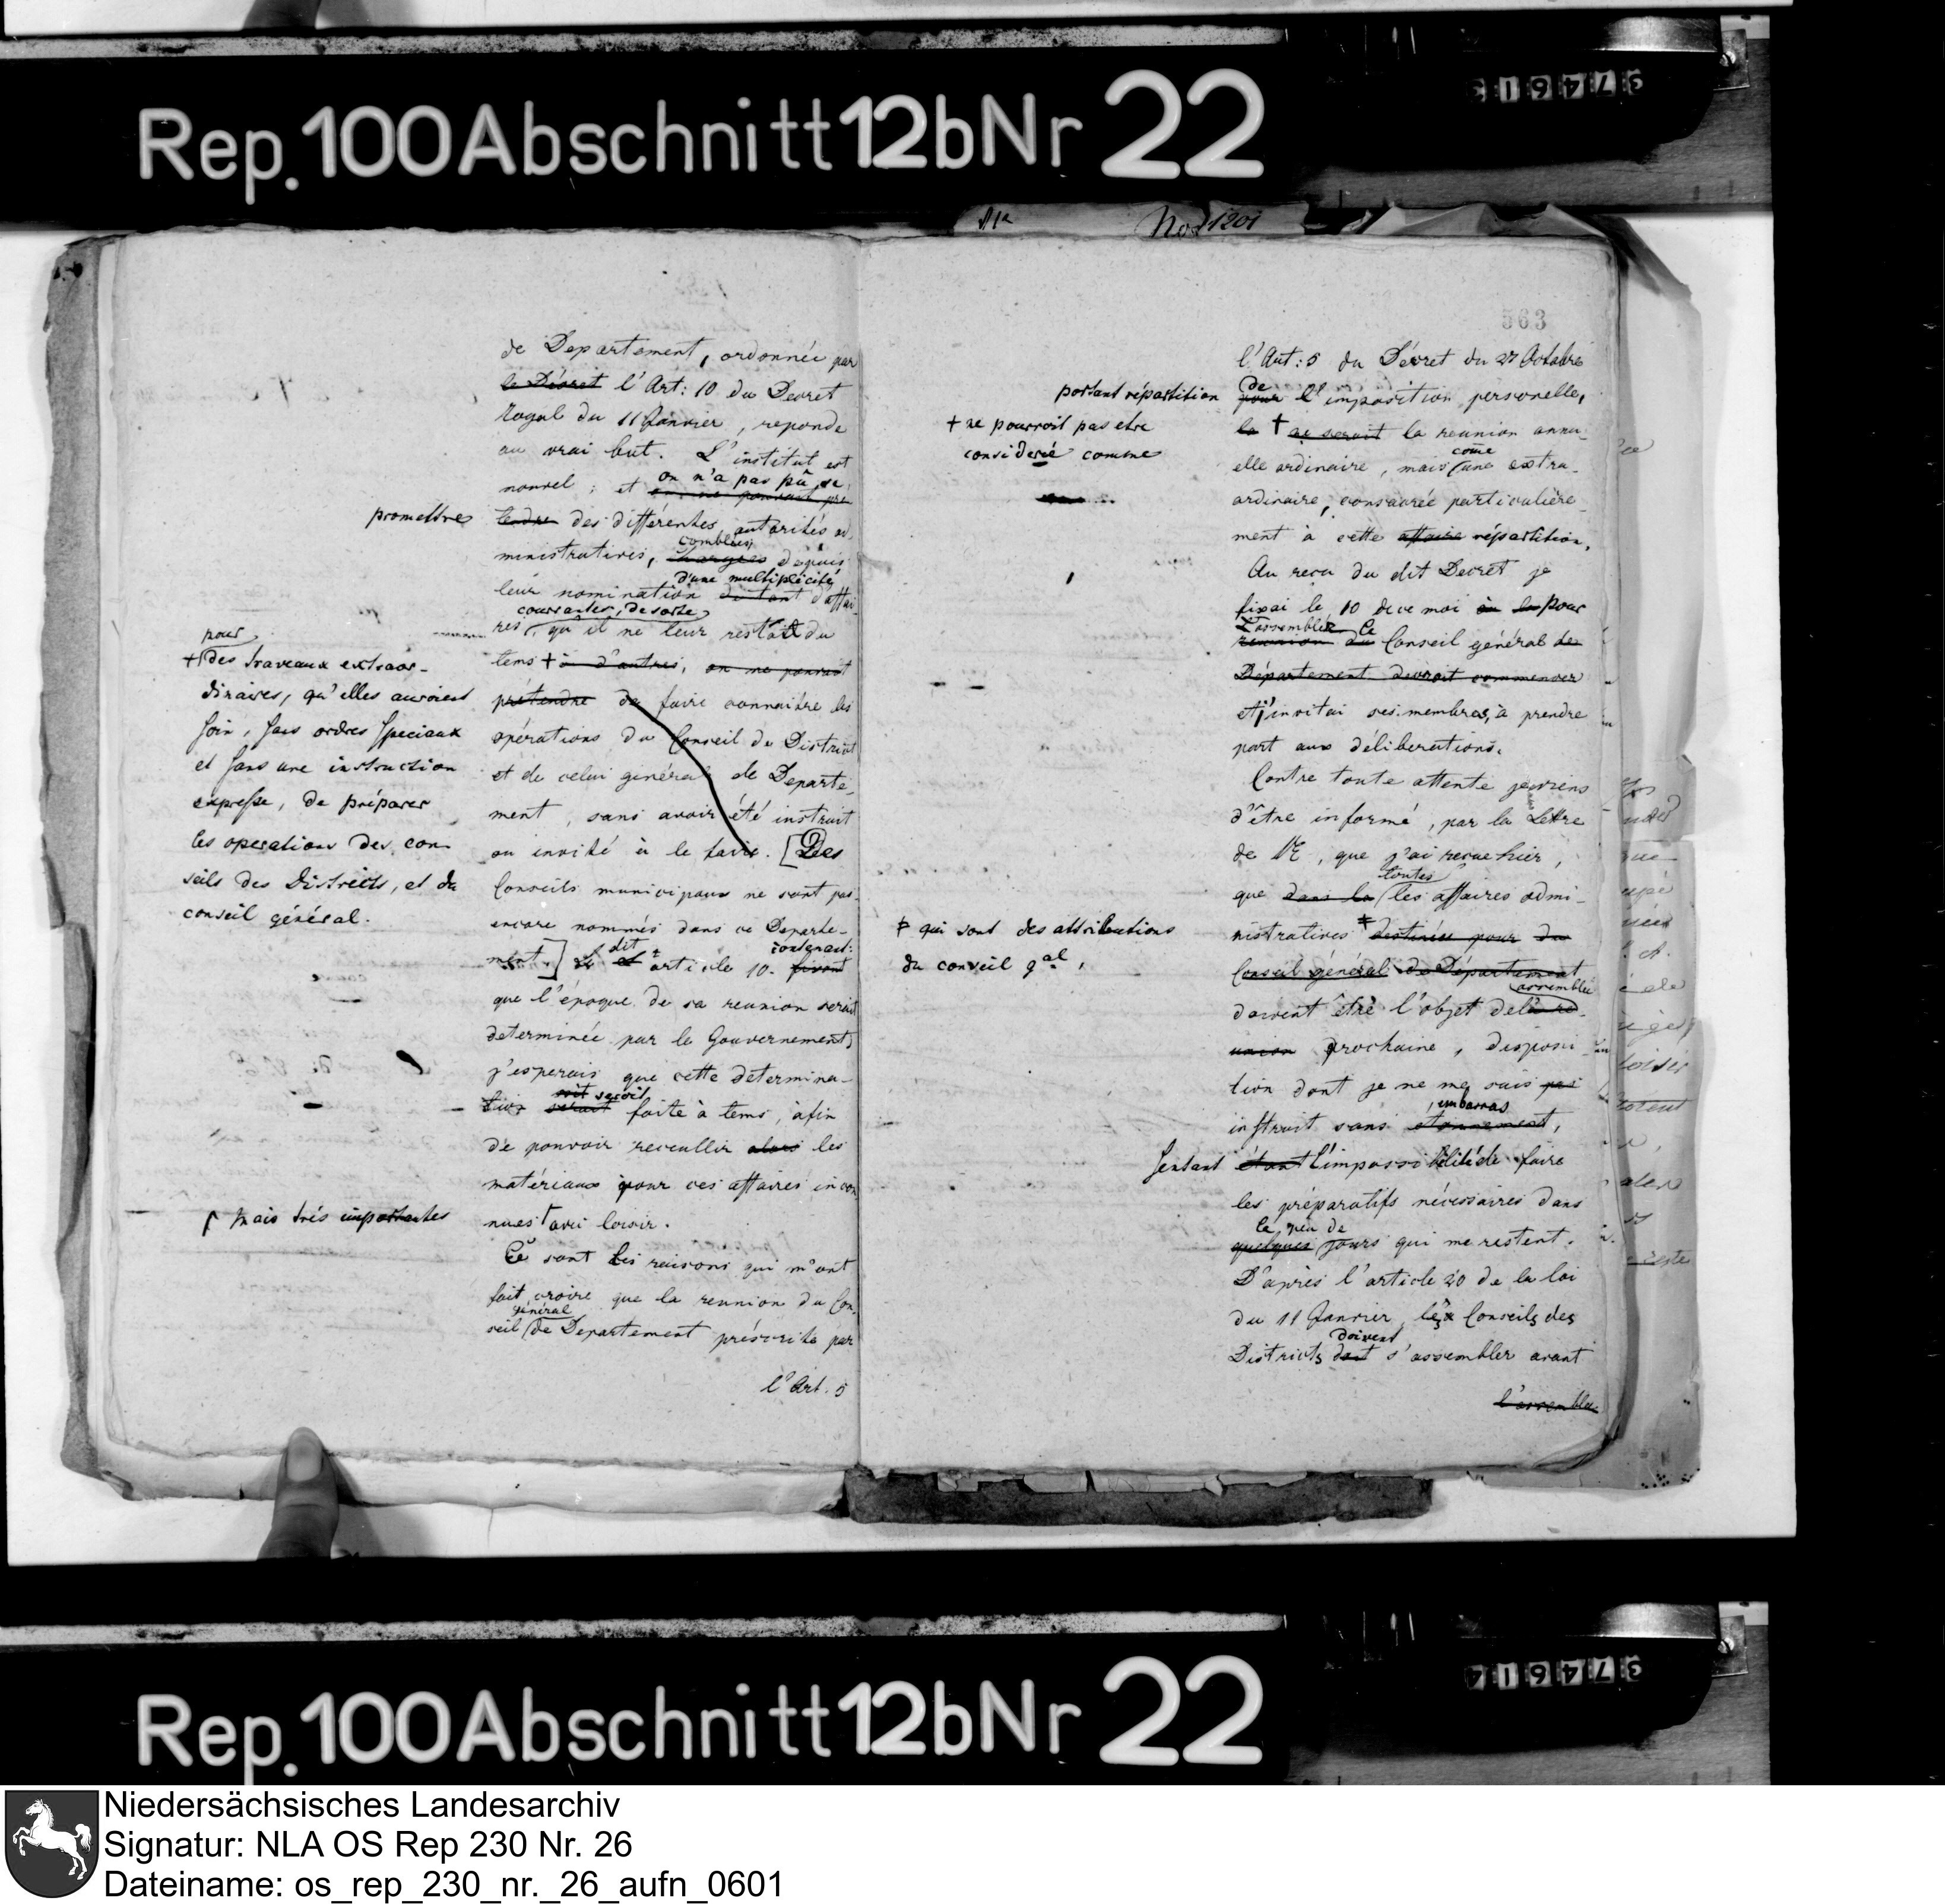 Rep. 100 Abschnitt 12b Nr 22
374613
No 1201
de Departement, ordonnée par
le Décret l'Art: 10 du Decret
Royal du 11 Janvier, reponde
au vrai but. L'institut est
on n'a pas pû se
nouvel ; et
promettre
tendre des différentes autorités ad
comblées
ministratives, chargées depuis
d'une multiplicité
leur nomination de tant d'affai-
courrantes, de sorte
res, qu'il ne leur restoit du
tems + à d'autres, on ne pouvait
prétendre de faire connaitre les
opérations du Conseil de District
et de celui général de Departe-
ment, sans avoir été instruit
ou invité à le faire. [Des
Conseils municipaux ne sont pas
encore nommés dans ce Departe-
dit contenant:
ment.] Le article 10. fixant
que l'époque de sa reunion serait
determinée par le Gouvernement,
j'esperais que cette determina-
soit seroit
tion serait faite à tems, àfin
de pouvoir receullir alors les
matériaux pour ces affaires incon
nues avec loisir.
Ce sont les raisons qui m'ont
fait croire que la reunion du Con-
général
seil de Departement préscrite par
l'Art. 5
pour
+ des traveaux extraor-
dinaires, qu'elles auroient
soin, sans ordres speciaux
et sans une instruction
expresse, de préparer
les operations des con-
seils des Districts, et du
conseil général.
mais très importantes
563
l'Art: 5 du Décret du 27 Octobre
portant répartition
de
pour l'imposition personelle,
+ ne pourroit pas etre
consideré comme
la + ne serait la reunion annu-
come
elle ordinaire, mais une extra-
ordinaire, consacrée particulière-
ment à cette affaire répartition.
Au recu du dit Decret je
fixai le 10 de ce moi à la pour
L'assemblée
reunion du Conseil général de
Département devroit commencer
et j'invitai ses membres, à prendre
part aux déliberations.
Contre toute attente je viens
d'être informé, par la Lettre
de VE, que j'ai recue hier,
toutes
que dans la les affaires admi-
nistratives destinées pour du
‡ qui sont des attributions
du conseil gal,
Conseil général de Département
assemblée
doivent être l'objet de la re-
union prochaine, disposi-
tion dont je ne me suis pas
embarras
instruit sans étonnement,
sentant étant l'impossibilité de faire
les préparatifs nécessaires dans
le peu de
quelques jours qui me restent.
D'après l'article 20 de la loi
du 11 Janvier, les Conseils des
doivent
Districts doit s'assembler avant
l'assemblée
374614
Rep. 100 Abschnitt 12b Nr 22
Niedersächsisches Landesarchiv
Signatur: NLA OS Rep 230 Nr. 26
Dateiname: os_rep_230_nr._26_aufn_0601